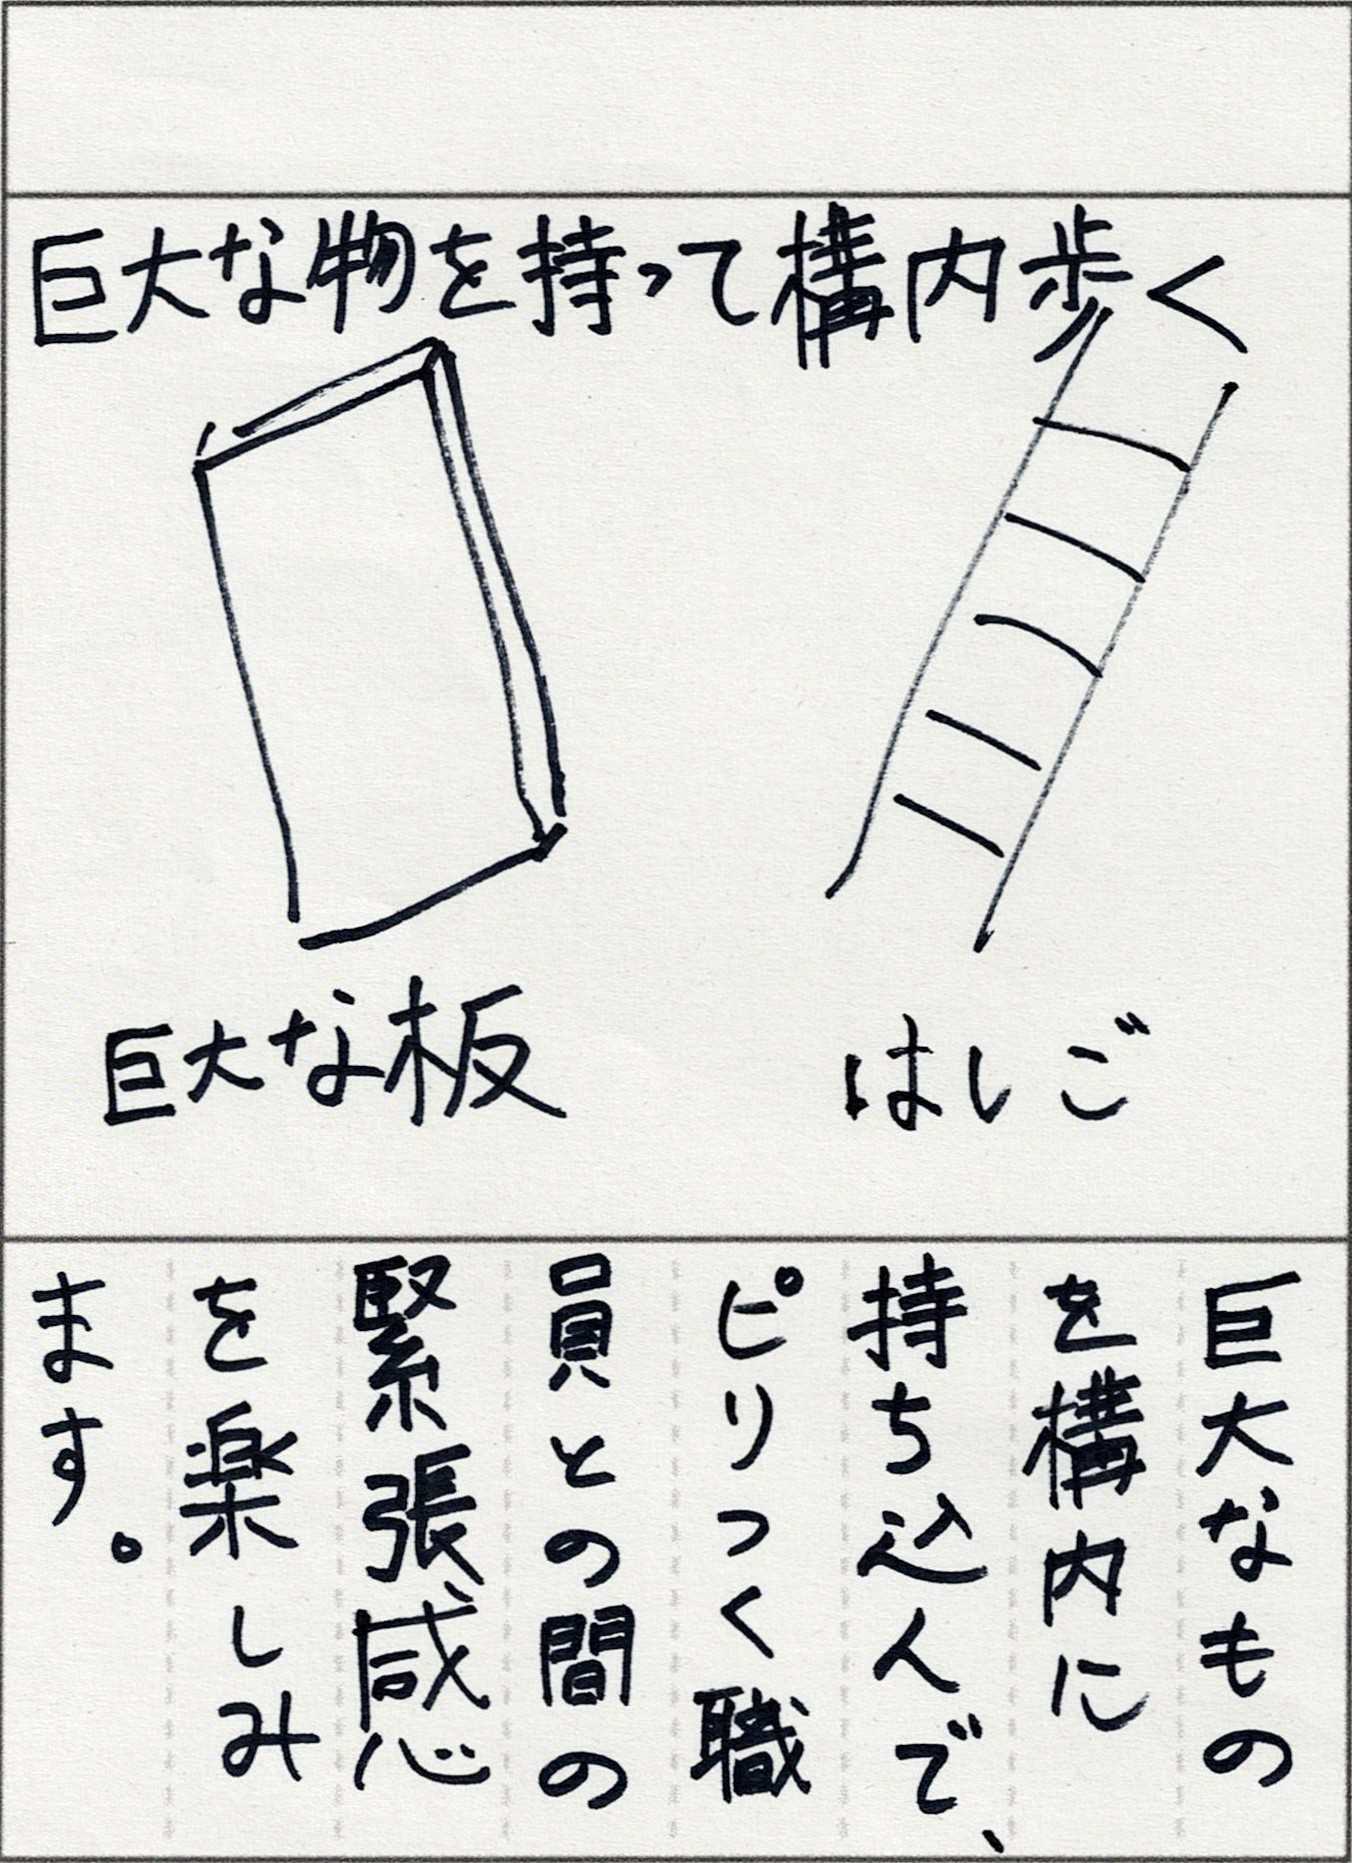 巨大な物を持って構内歩く
巨大な板
はしご
巨大なもの
を構内に
持ち込んで、
ピリつく職
員との間の
緊張感
を楽しみ
ます。